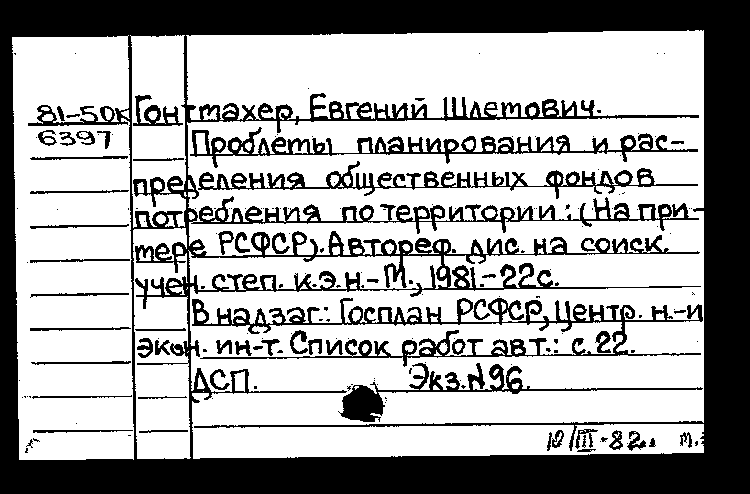 81-50к Гонтмахер, Евгений Шлемович.
6397 Проблемы планирования и рас-
пределения общественных фондов
потребления по территории: (На при-
мере РСФСР). Автореф. дис. на соиск.
учен. степ. к.э.н.-М., 1981.-22с.
В надзаг.: Госплан РСФСР, Центр. н.-и
экон. ин-т. Список работ авт.: с.22.
ДСП. Экз.№96.
10/III-82.. т.